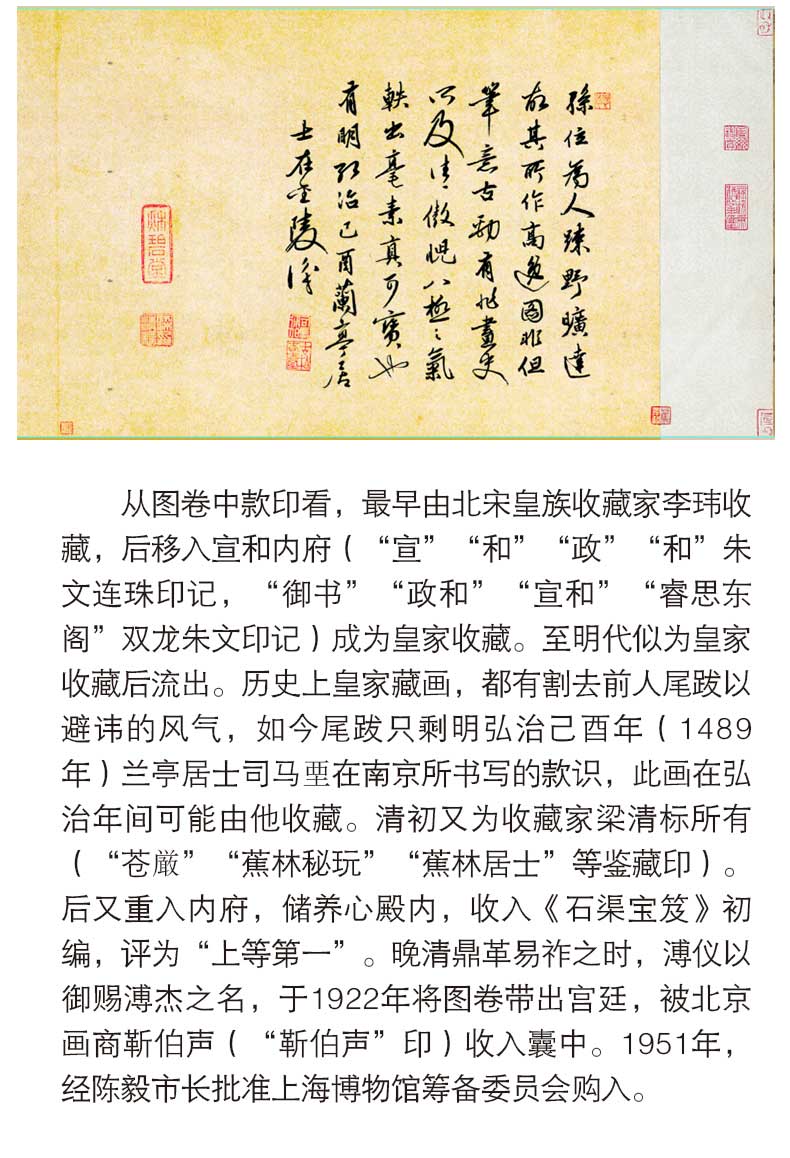 孫位為人疎野曠達
故其所作高逸圖非但
筆意古勁有非畫史
所及清傲晲八極之氣
軼出毫素真可寶也
有明弘治己酉蘭亭居
士在金陵識
从图卷中款印看，最早由北宋皇族收藏家李玮收
藏，后移入宣和内府（“宣”“和”“政”“和”朱
文连珠印记，“御书”“政和”“宣和”“睿思东
阁”双龙朱文印记）成为皇家收藏。至明代似为皇家
收藏后流出。历史上皇家藏画，都有割去前人尾跋以
避讳的风气，如今尾跋只剩明弘治己酉年（1489
年）兰亭居士司马垔在南京所书写的款识，此画在弘
治年间可能由他收藏。清初又为收藏家梁清标所有
（“苍厳”“蕉林秘玩”“蕉林居士”等鉴藏印）。
后又重入内府，储养心殿内，收入《石渠宝笈》初
编，评为“上等第一”。晚清鼎革易祚之时，溥仪以
御赐溥杰之名，于1922年将图卷带出宫廷，被北京
画商靳伯声（“靳伯声”印）收入囊中。1951年，
经陈毅市长批准上海博物馆筹备委员会购入。